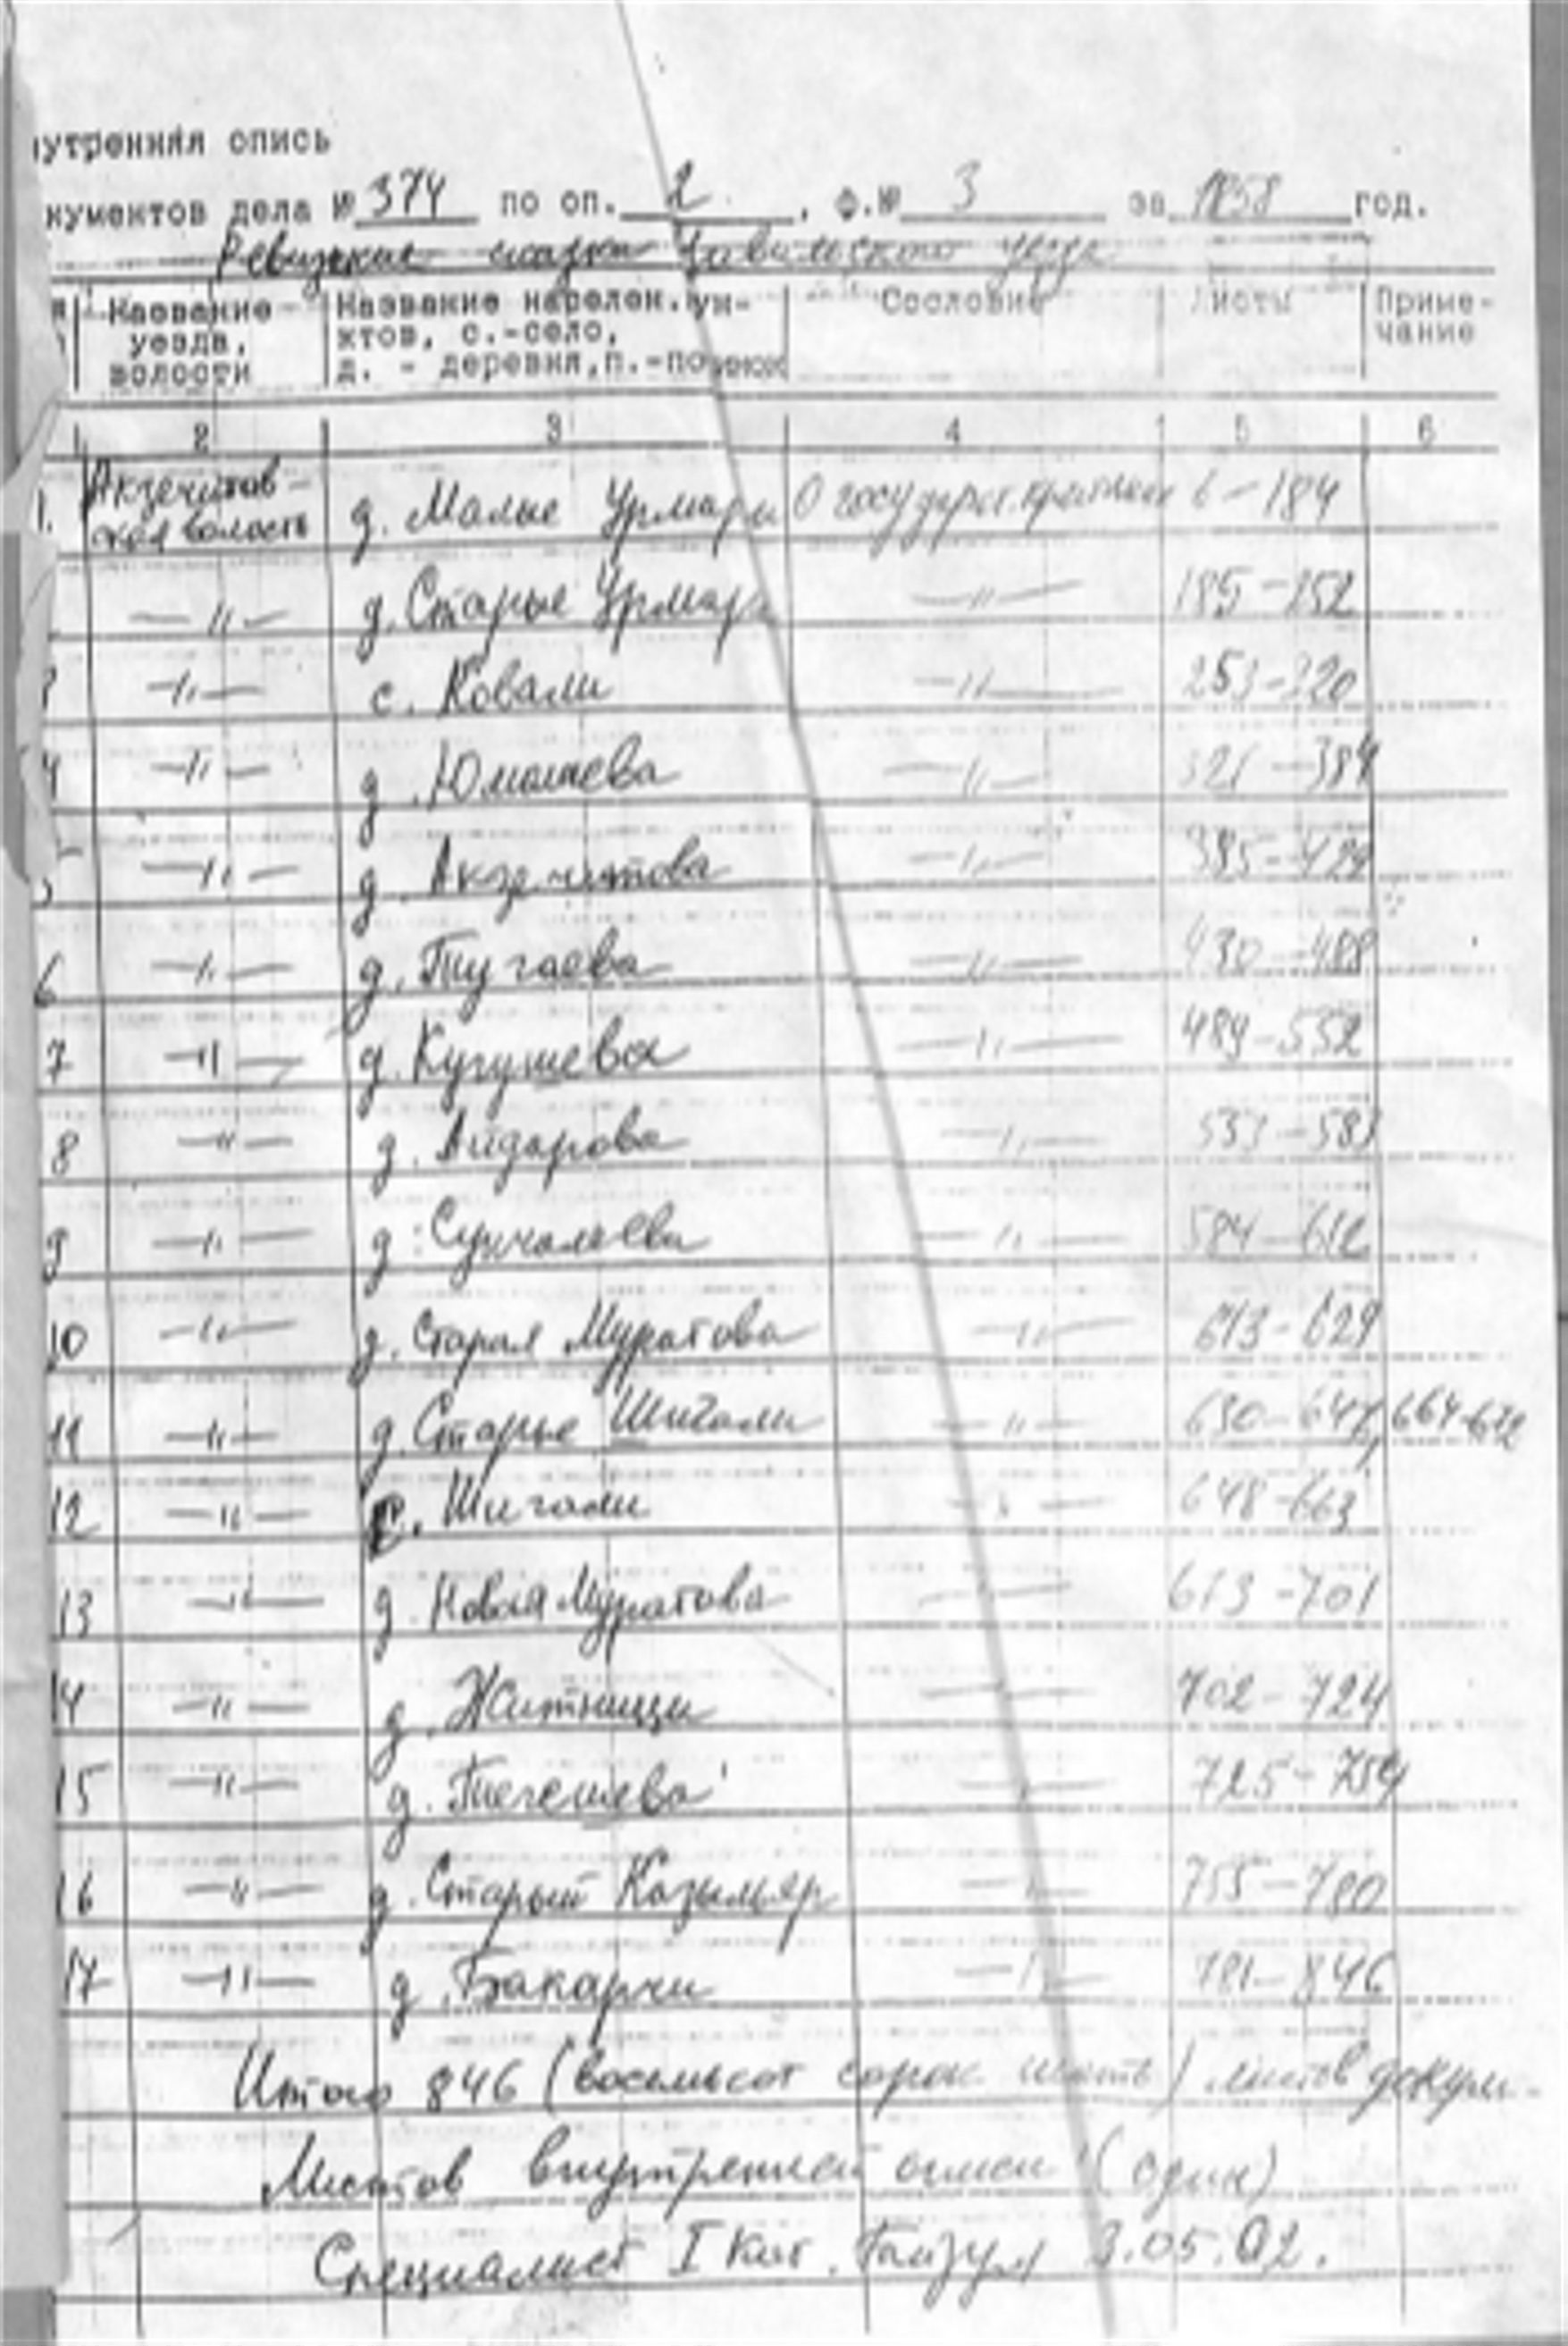 утренняя опись
кументов дела № 374 по оп. 2. ф.№ 3 за 1858 год.
Ревизские сказки Цивильского уезда
Название уезда, волости | Название населен. ун- ктов, с.-село, д. - деревня, п.- | Сословие | Листы | Приме- чание
2 3 4 5 6
1. Акзегитов- ская волость д. Малые Урмары О государст. крестьян 6-184
—"— д. Старые Урмары —"— 185-252
—"— с. Ковали —"— 253-320
4 —"— д. Юмашева —"— 321-384
5 —"— д. Акзегитова —"— 385-429
6 —"— д. Тугаева —"— 430-488
7 —"— д. Кугушева —"— 489-532
8 —"— д. Айдарова —"— 533-583
9 —"— д. Сунчалеева —"— 584-612
10 —"— д. Старая Муратова —"— 613-629
11 —"— д. Старые Шигали —"— 630-647, 664-672
12 —"— с. Шигали —"— 648-663
13 —"— д. Новая Муратова —"— 673-701
14 —"— д. Житницы —"— 702-724
15 —"— д. Тегешева —"— 725-754
16 —"— д. Старый Козыльяр —"— 755-780
17 —"— д. Бакарчи —"— 781-846
Итого 846 (восемьсот сорок шесть) листов докум.
Листов внутренней описи 1 (один)
Специалист I кат. 3.05.92.